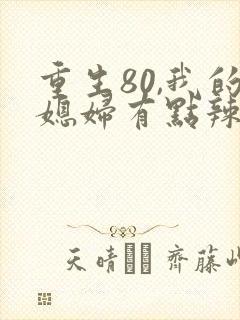 重生80,我的
媳婦有點辣
天晴 齊藤